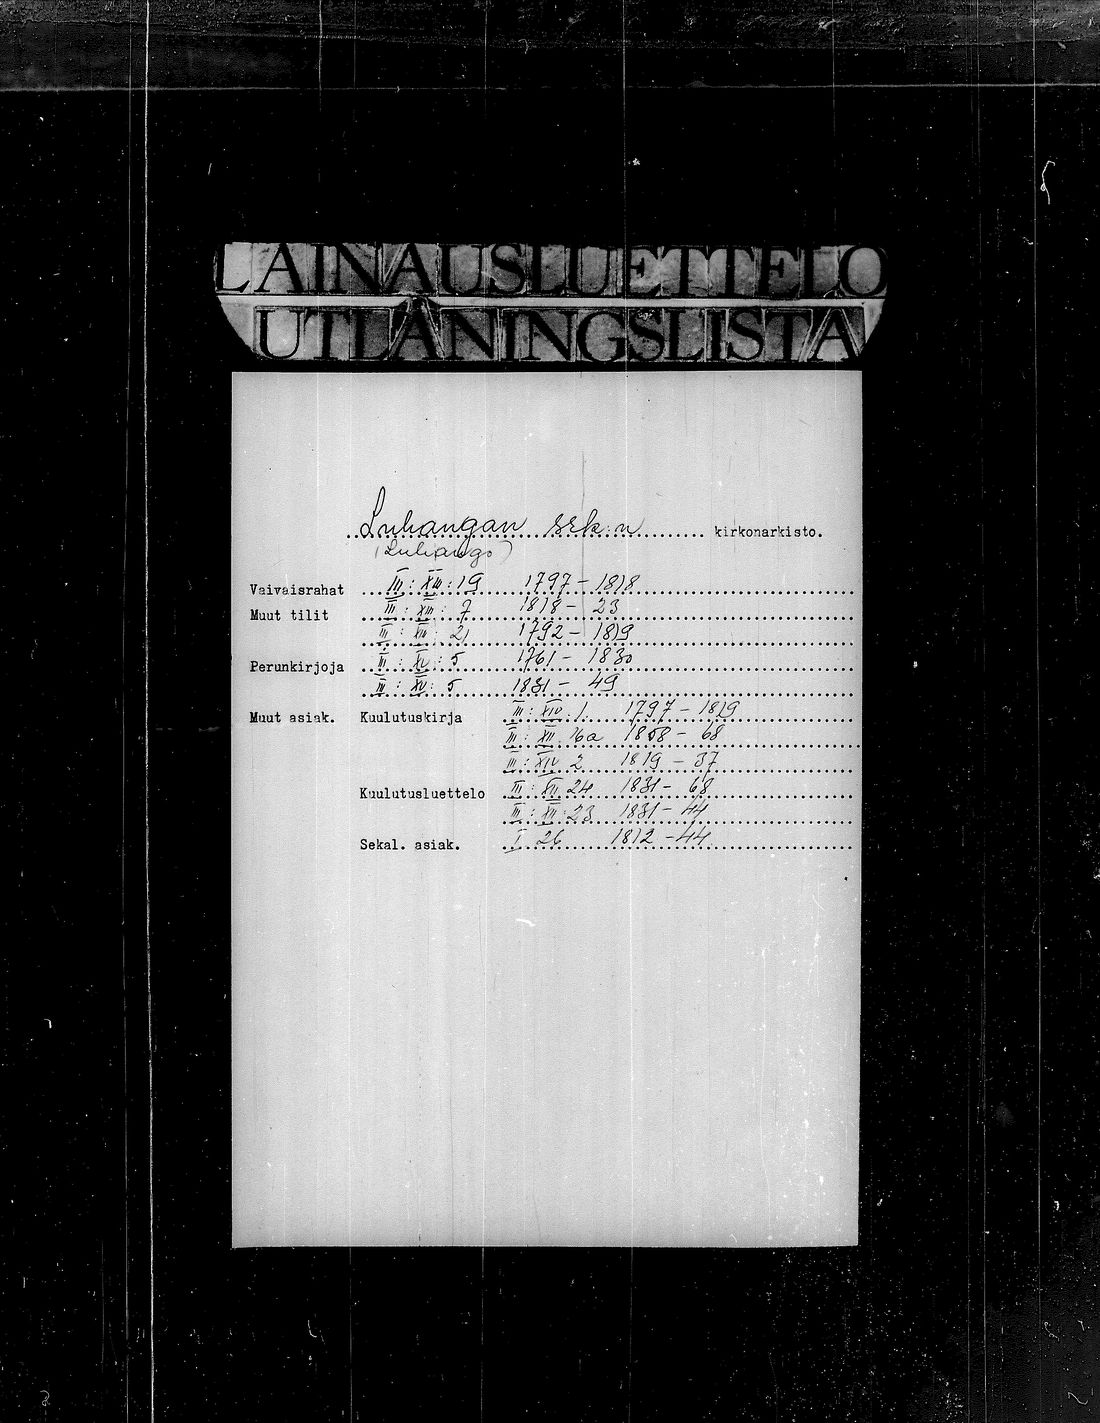 LAINAUSLUETTELO
UTLÅNINGSLISTA
Luhangan srk:n kirkonarkisto.
(Luhango)
Vaivaisrahat III : XIII : 19 1797 – 1818
Muut tilit III : XIII : 7 1818 – 23
III : XII : 21 1792 – 1819
Perunkirjoja III : XV : 5 1761 – 1830
III : XV : 5 1831 – 49
Muut asiak. Kuulutuskirja III : XIV : 1. 1797 – 1819
III : XII 16a 1858 – 68
III : XIV 2 1819 – 37
Kuulutusluettelo III : XII 24 1831 – 68
III : XII : 23 1831 – 44
Sekal. asiak. I 26 1812 – 44